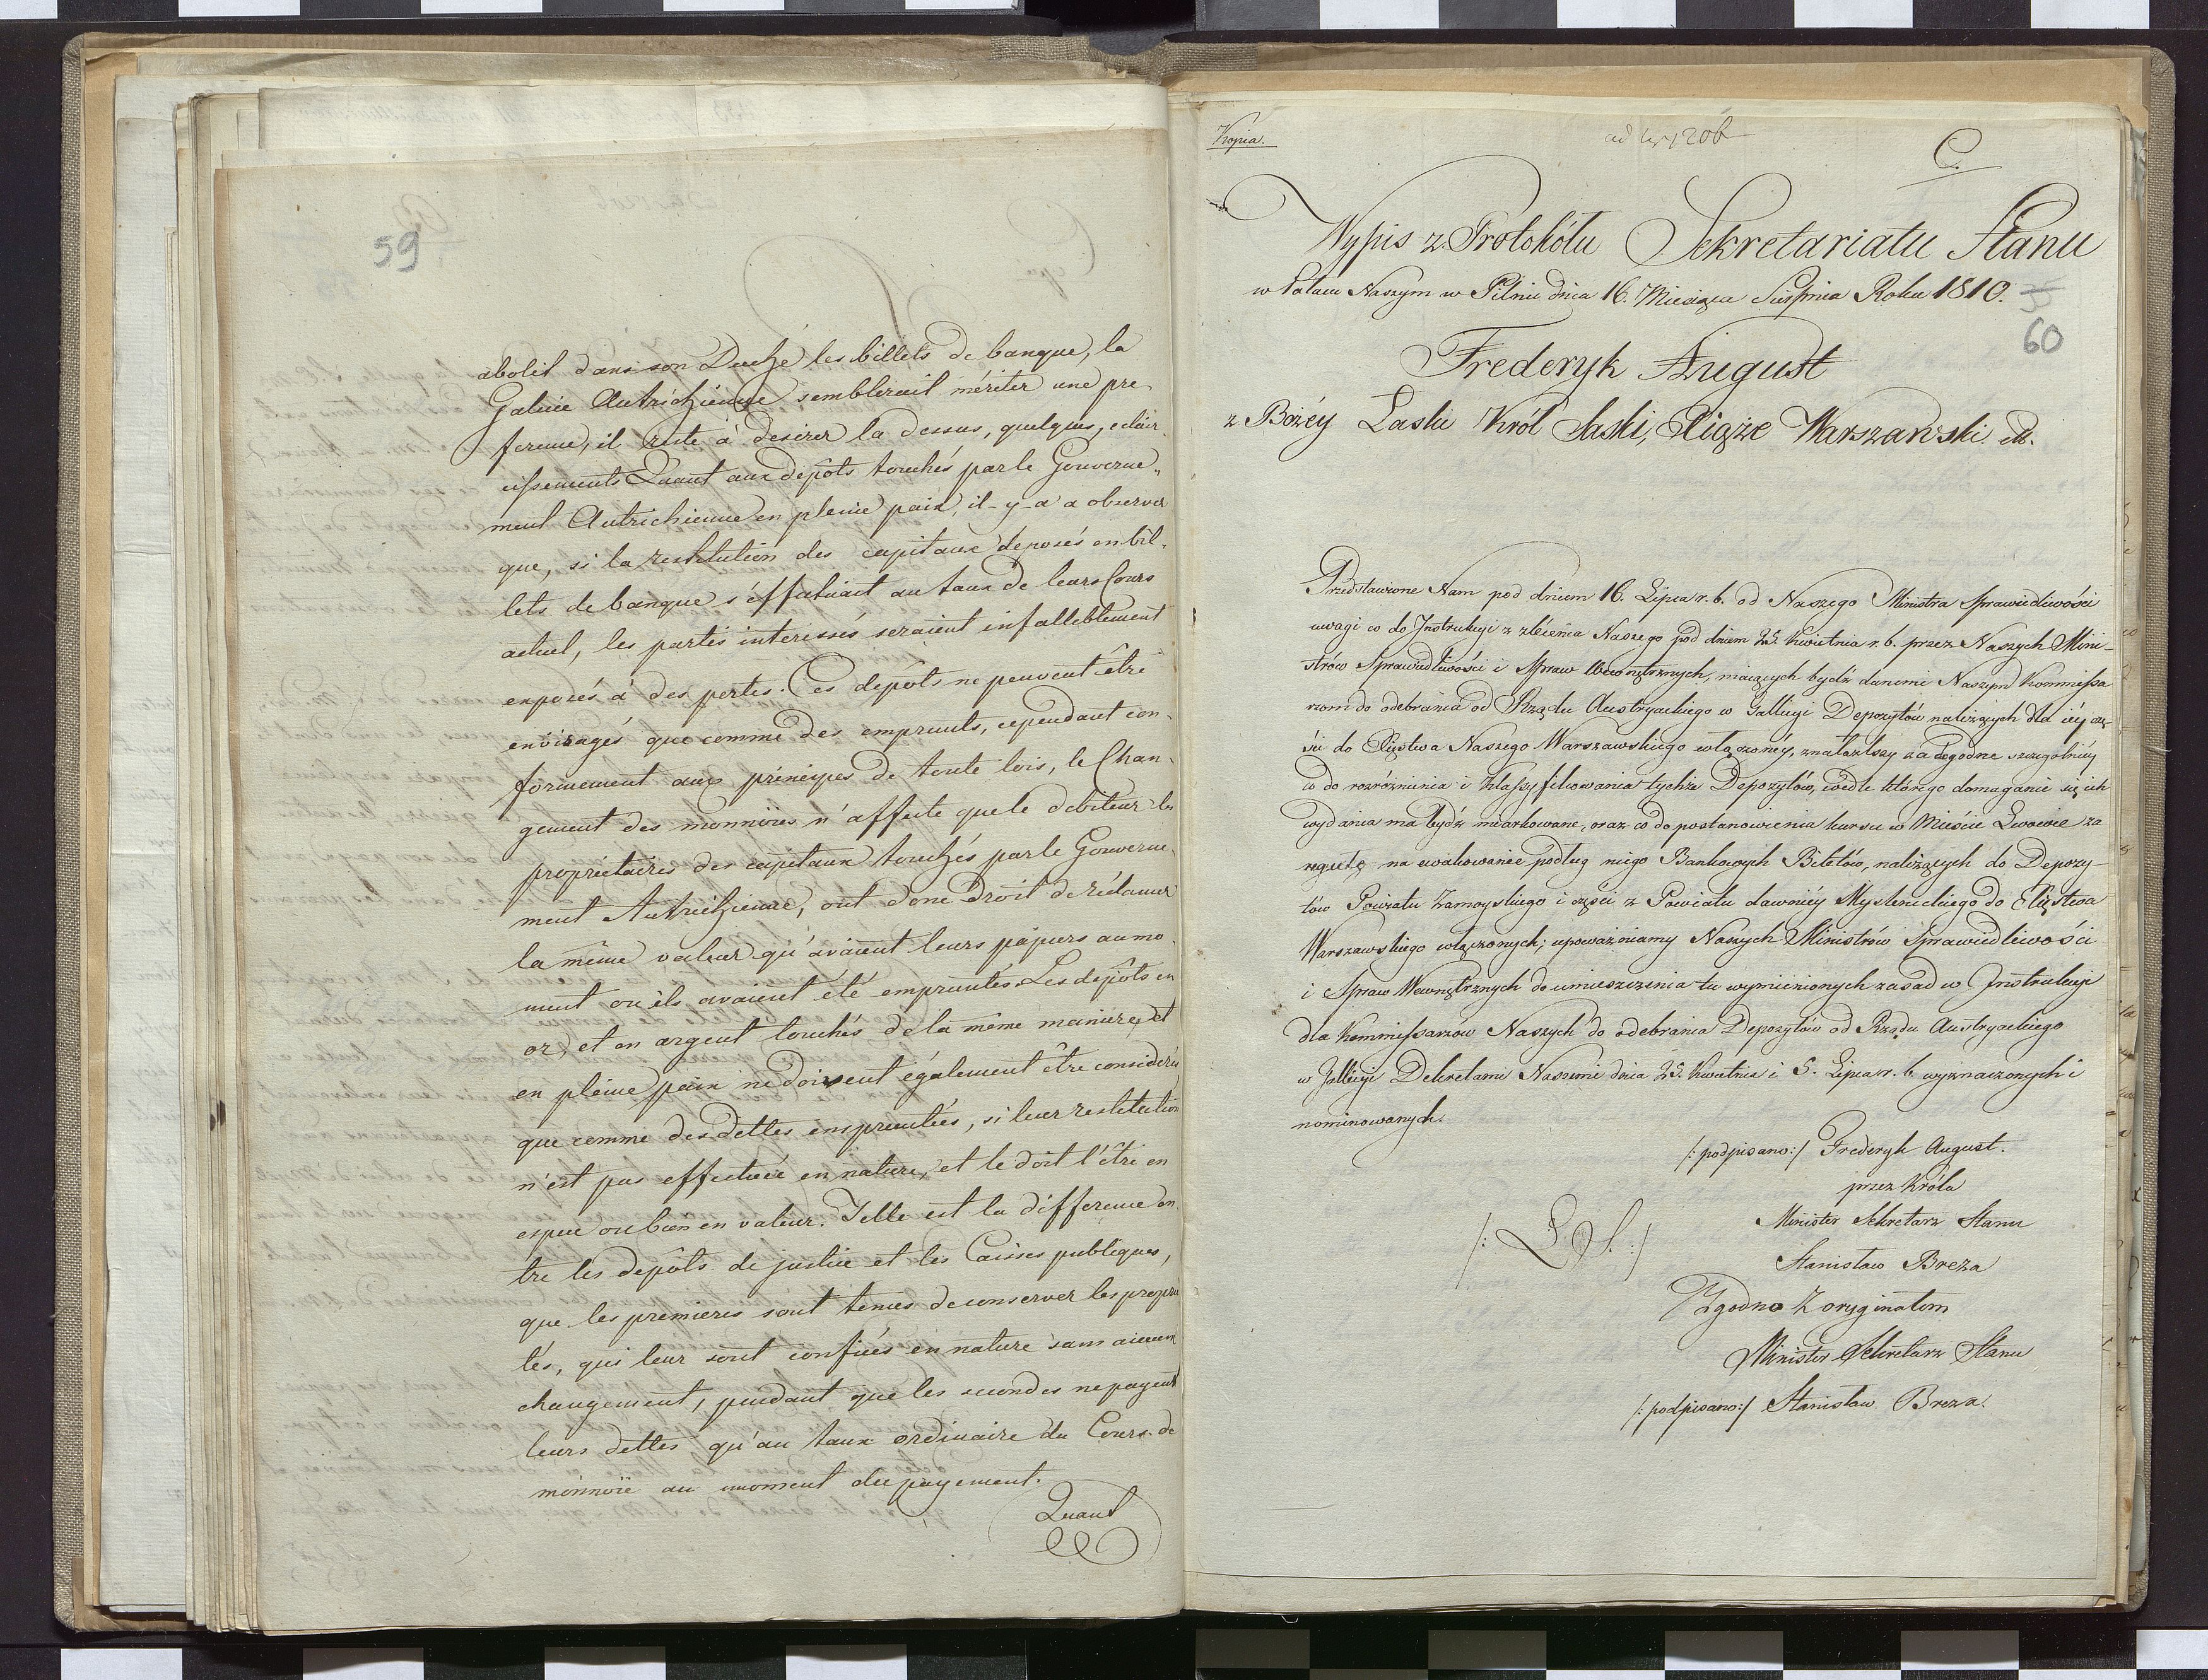 59
abolit dans son Duché les billets de banque, la
Galicie Autrichienne semblerait mériter une pre-
ference, il reste à desirer la dessus, quelques, eclair-
cissements Quant aux depôts touchés par le Gouverne-
ment Autrichienne en pleine paix, il-y-a a observer
que, si la restitution des capitaux déposés en bil-
lets de banque s'éffectuait au taux de leurs Cours
actuel, les partis interessés seraient infalleblement
exposés à des pertes. Ces depôts ne peuvent être
envisagés que comme des emprunts, cependant con-
formement aux principes de toute lois, le Chan-
gement des monnoies n'affecte que le debiteur les
propriétaires des capitaux touchés par le Gouverne-
ment Autrichienne, ont donc droit de réclamer
la même valeur qu'avaient leurs papiers au mo-
ment ou ils avaient été empruntés. Les depôts en
or, et en argent touchés de la même manière, et
en pleine paix ne doivent également être considerés
que comme des dettes empruntées, si leur restitution
n'est pas effectuée en nature, et le doit l'être en
espece ou bien en valeur. Telle est la différence en
tre les depôts de justice et les Caisses publiques,
que les premieres sont tenues de conserver les proprie
tés, qui leur sont confiées en nature sans aucun
changement, pendant que les secondes ne payent
leurs dettes qu'au taux ordinaire du Cours de
monnoie au moment du payement.
Quant
Kopia.
C.
Wypis z Protokółu Sekretariatu Stanu
w Pałacu Naszym w Pilnic dnia 16. Miesiąca Sierpnia Roku 1810.
60
Frederyk August
z Bożéy Łaski Król Saski, Xiąże Warszawski etc.
Przedstawione Nam pod dniem 16. Lipca r. b. od Naszego Ministra Sprawiedliwości
uwagi co do Instrukcyi z zlecenia Naszego pod dniem 25. Kwietnia r. b. przez Naszych Mini-
strów Sprawiedliwości i Spraw Wewnętrznych, maiących bydź danemi Naszym Kommissa
rzom do odebrania od Rządu Austryackiego w Gallicyi Depozytów należących dla iéy czę
ści do Xięstwa Naszego Warszawskiego włączonéy, znalazłszy za dogodne szczególniéy
co do rozróżnienia i klassyfikowania tychże Depozytów, wedle którego domaganie się ich
wydania ma bydź miarkowane, oraz co do postanowienia kursu w Mieście Lwowie za
regułę na ewalwowanie podług niego Bankowych Biletów, należących do Depozy-
tów Powiatu Zamoyskiego i części z Powiatu dawniéy Myslenickiego do Xięstwa
Warszawskiego włączonych; upoważniamy Naszych Ministrów Sprawiedliwości
i Spraw Wewnętrznych do umieszczenia tu wymienionych zasad w Instrukcyi
dla Kommissarzow Naszych do odebrania Depozytów od Rządu Austryackiego
w Gallicyi Dekretami Naszemi dnia 25. Kwietnia i 5. Lipca r. b. wyznaczonych i
nominowanych.
/: podpisano :/ Frederyk August.
przez Króla
Minister Sekretarz Stanu
/: L. S. :/
Stanisław Breza
Zgodno z oryginałem
Minister Sekretarz Stanu
/: podpisano :/ Stanisław Breza.